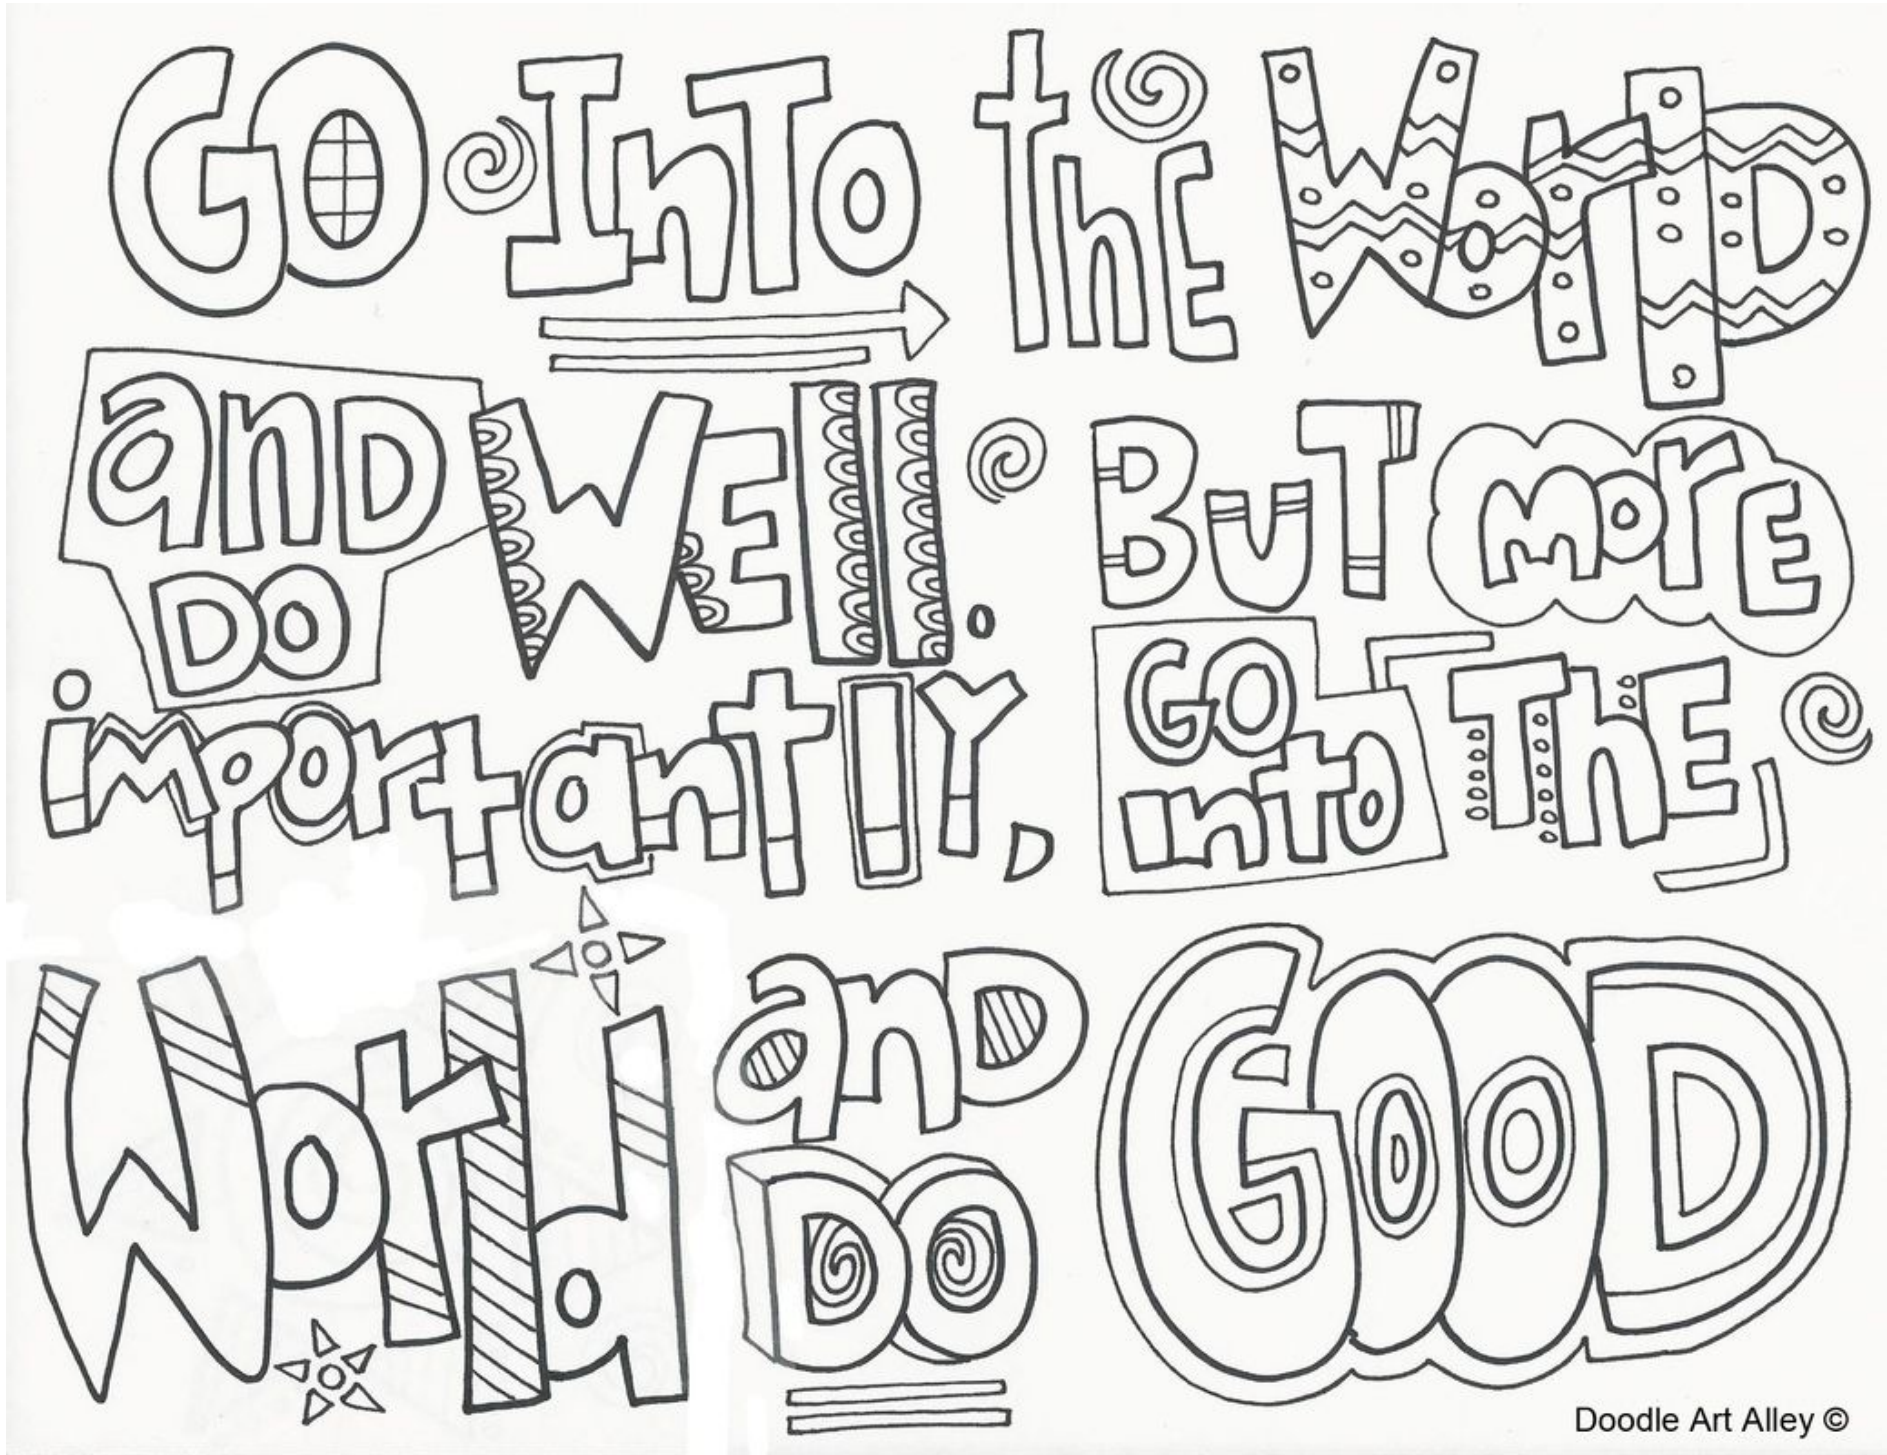 GO InTo the WorlD
anD WEll. BuT morE
DO
importantlY, GO into ThE
World anD DO GOOD
Doodle Art Alley ©